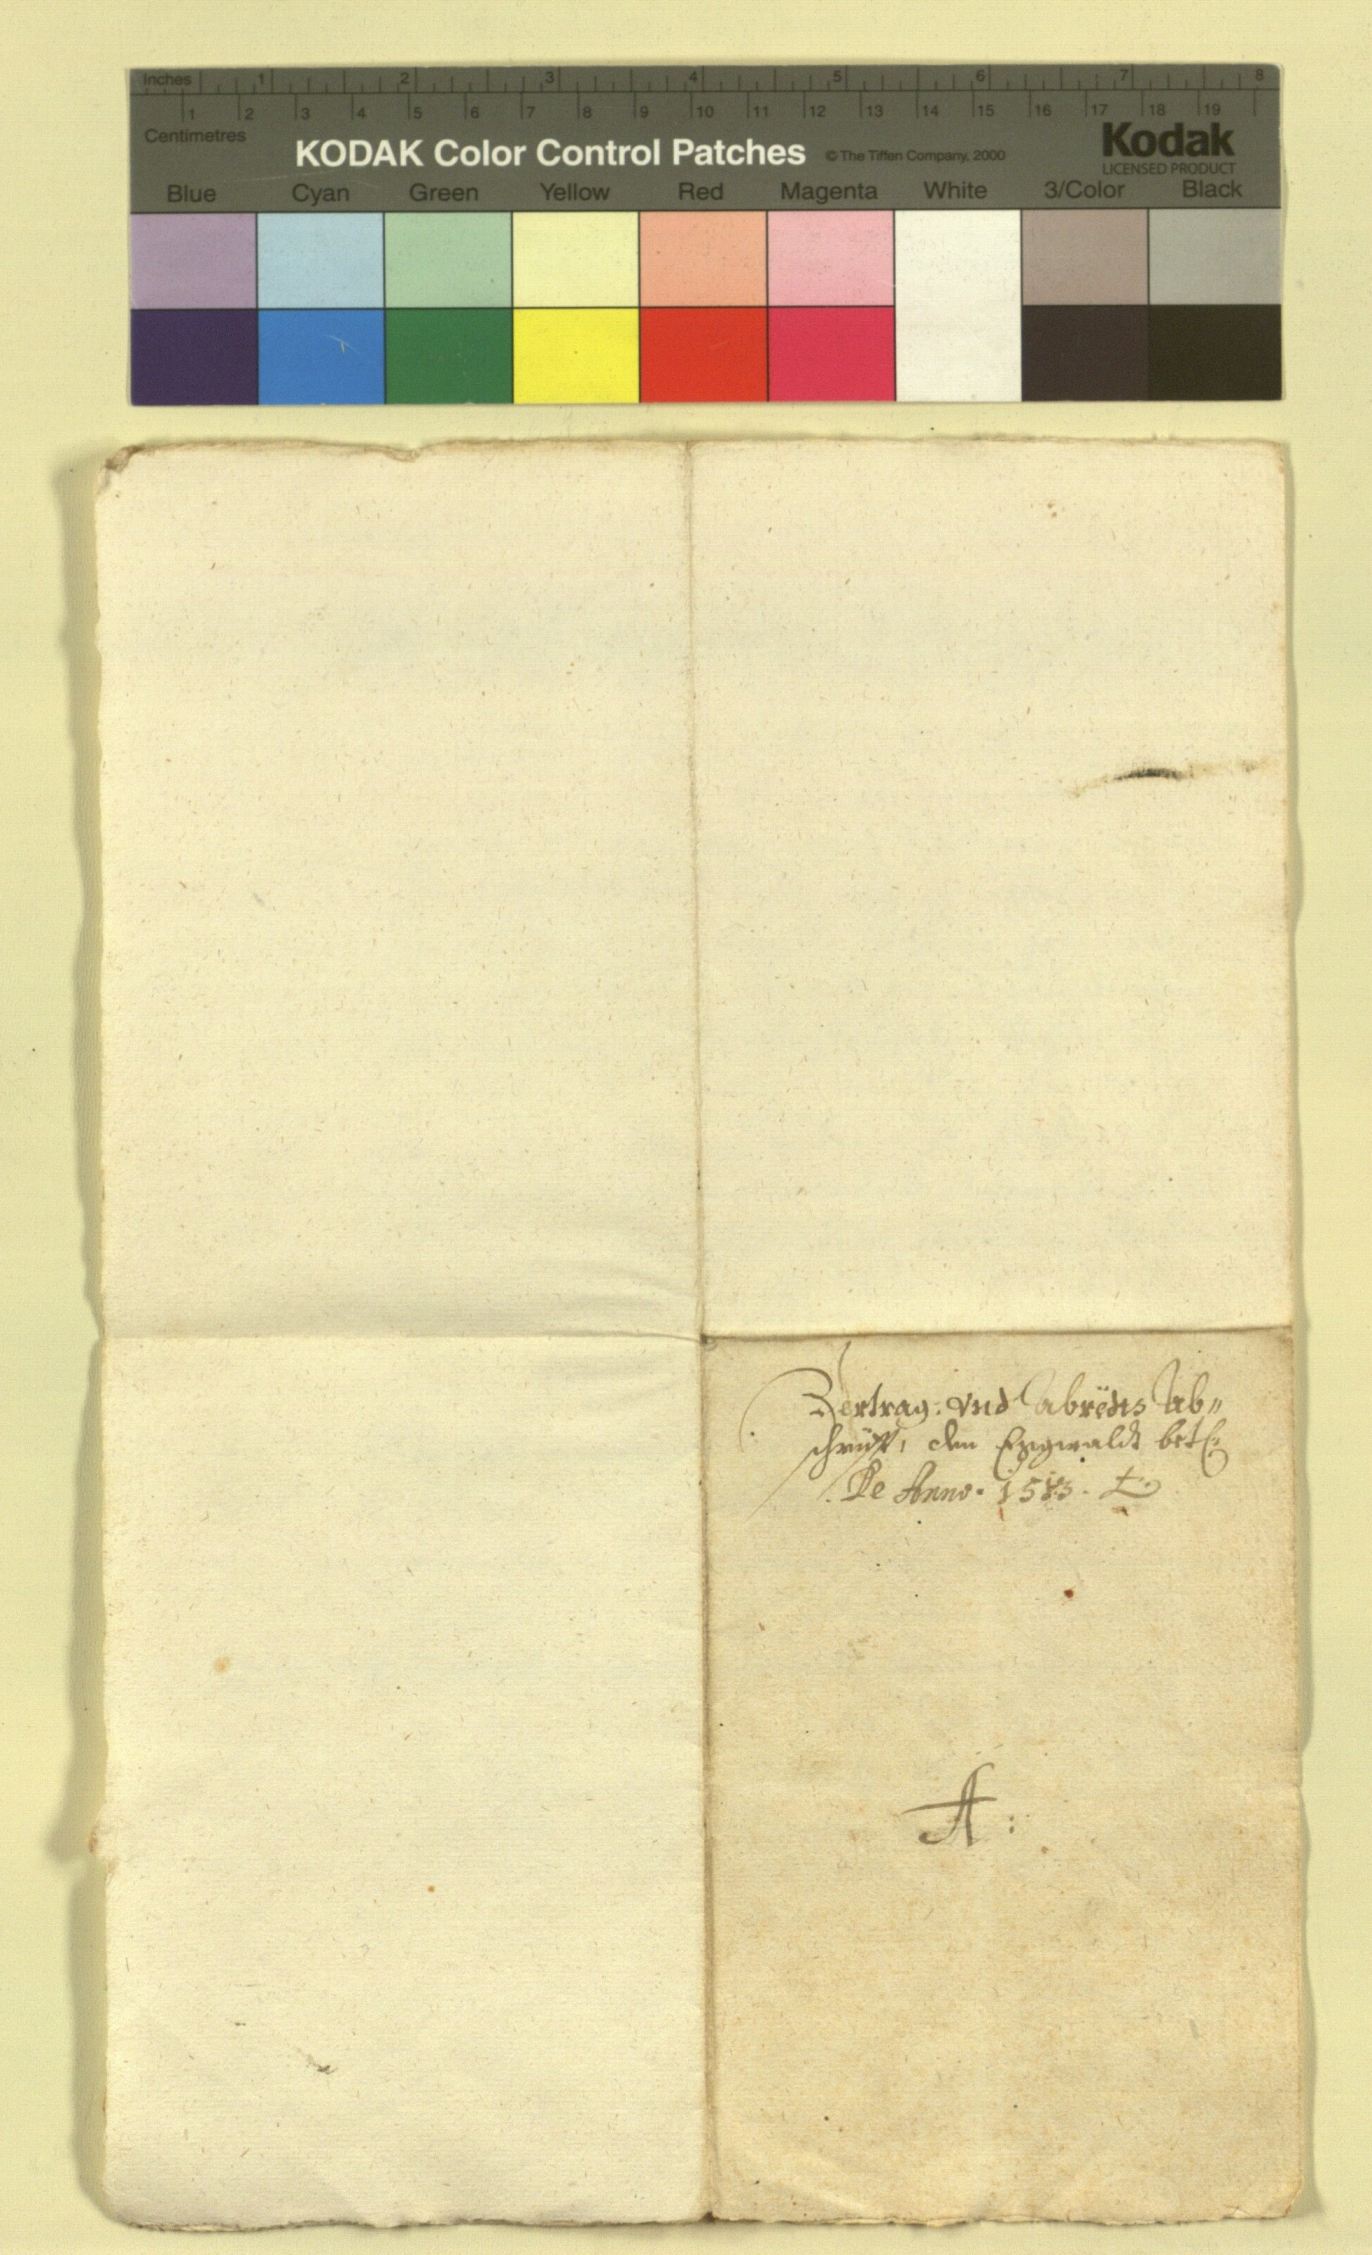 Inches 1 2 3 4 5 6 7 8
1 2 3 4 5 6 7 8 9 10 11 12 13 14 15 16 17 18 19
Centimetres
KODAK Color Control Patches © The Tiffen Company, 2000 Kodak
LICENSED PRODUCT
Blue Cyan Green Yellow Red Magenta White 3/Color Black
Vertrag: vnd Ab"
schrifft, den
De Anno. 1583.
A: